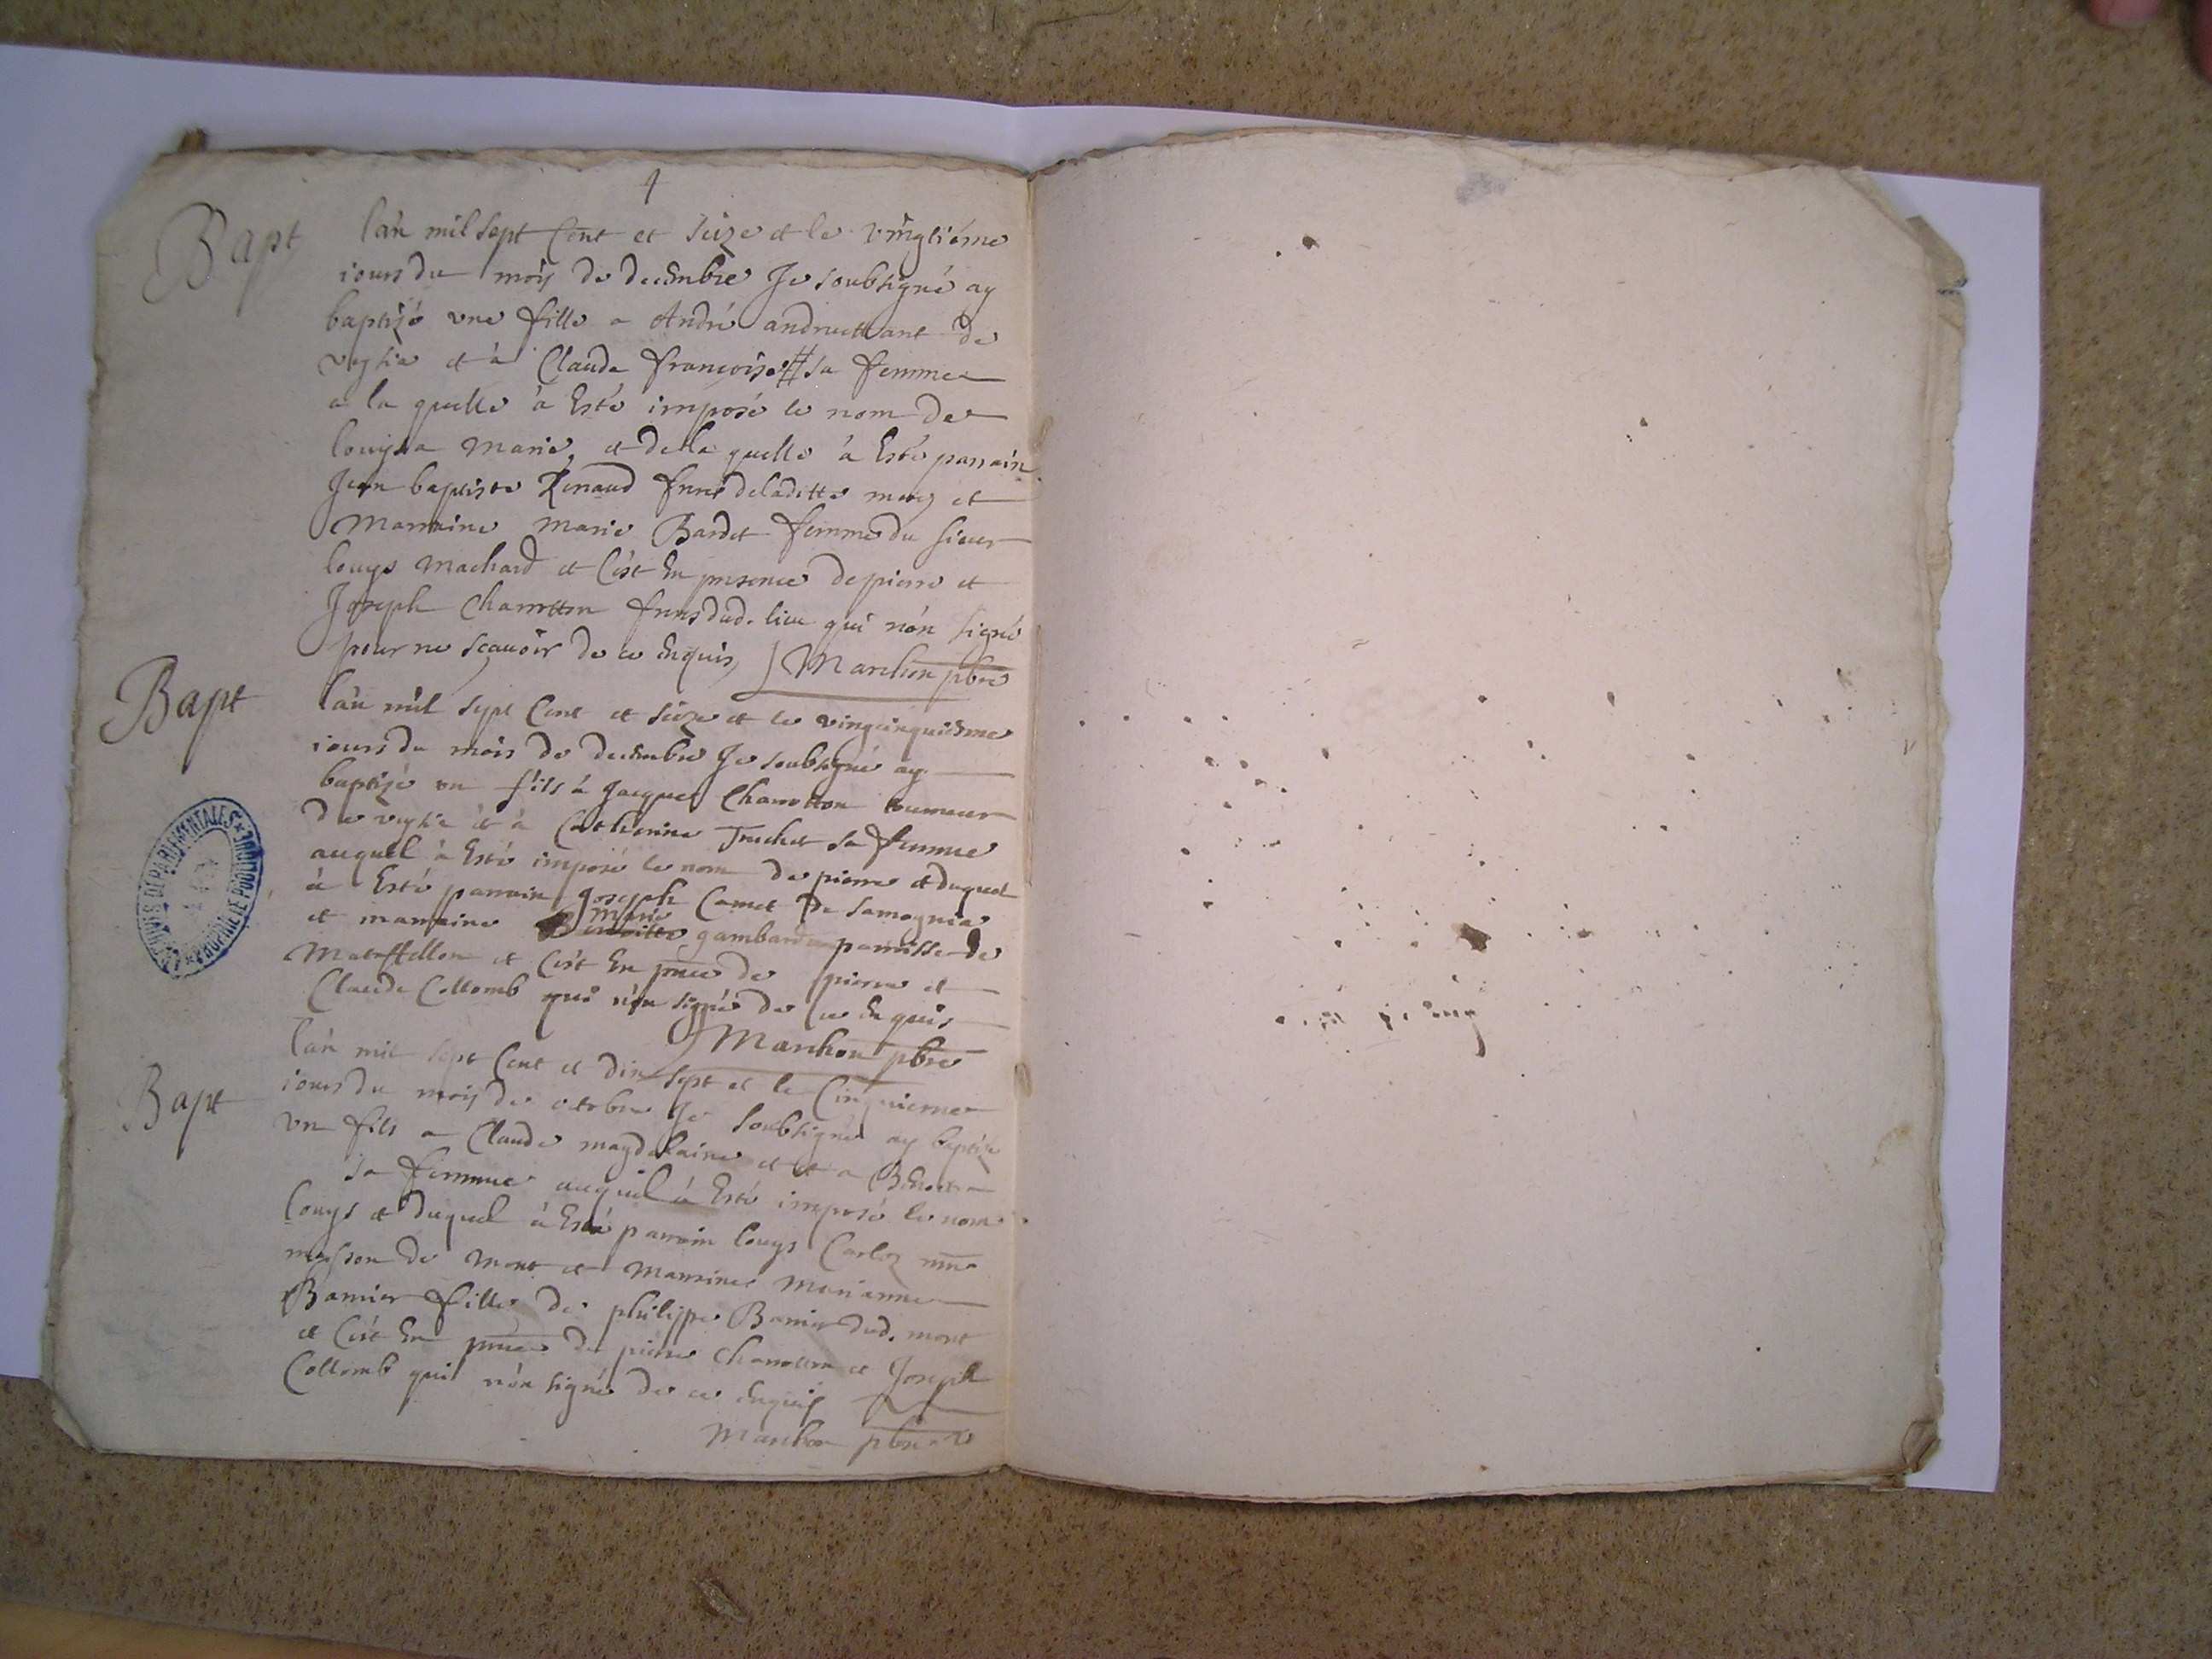 Bapt
lan mil sept Cent et seize et le vingtiéme
iours du mois de decembre Je soubsigné ay
baptizé une fille a André de
et à Claude françoise # sa femme
a la quelle à Esté imposé le nom de
louysa Marie, et de la quelle à Esté parrain
Jean baptiste Renaud de laditte et
Marraine Marie Bardet femme du sieur
louys Machard et C'est En presence de pierre et
Joseph Charotton dud. lieu qui nón signé
pour ne scauoir de ce Enquis, Marchon pbre
Bapt
lán mil sept Cent et seize et le vingcinquiéme
iours du mois de decembre Je soubsigné ay
baptizé un fils à Jacques Charotton
de et à Catherine Truchet sa femme
auquel à Esté imposé le nom de pierre et duquel
à Esté parrain Joseph Camet De Samognia
et marraine Marie gambard parroisse de
Mataffellon et C'est En pnce de pierre et
Claude Collomb qui nón signé de ce Enquis
Marchon pbre
Bapt
lán mil sept Cent et dix sept et le Cinquieme
iours du mois de octobre Je soubsigné ay baptizé
un fils a Claude magdelaine et a Benoite
sa femme auquel à Esté imposé le nom
louys et duquel à Esté parrain louys Carloz
masson de Mont et Marraine Marianne
Barnier fille de philippe Barnier dud. mont
et C'est En pnce de pierre Charotton et Joseph
Collomb qui nón signé de ce Enquis
Marchon pbre
ARCHIVES DÉPARTEMENTALES
PROPRIÉTÉ PUBLIQUE